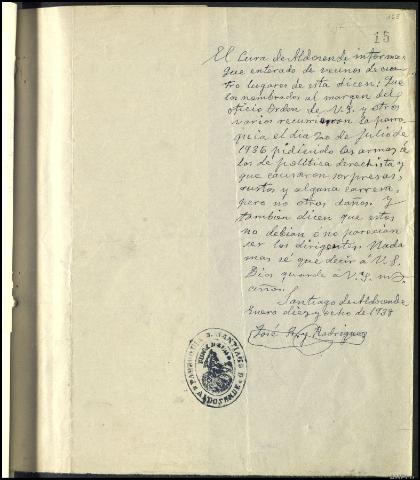 15
El Cura de Aldosende informa:
Que enterado de vecinos de cua-
tro lugares de esta dicen: Que
los nombrados al margen del
oficio Orden de V.S. y otros
varios recurrieron la parro
quia el dia 20 de Julio de
1936 pidiendo las armas a
los de politica derechista y
que causaron sorpresas,
sustos y alguna carrera,
pero no otros daños. Y
tambien dicen que estos
no debian o no parecian
ser los dirigentes. Nada
mas sé que decir á V.S.
Dios guarde á V.S. m.
años.
Santiago de Aldosende
Enero diez y ocho de 1938
José Rodriguez
PARROQUIA D. SANTIAGO D
ALDOSENDE